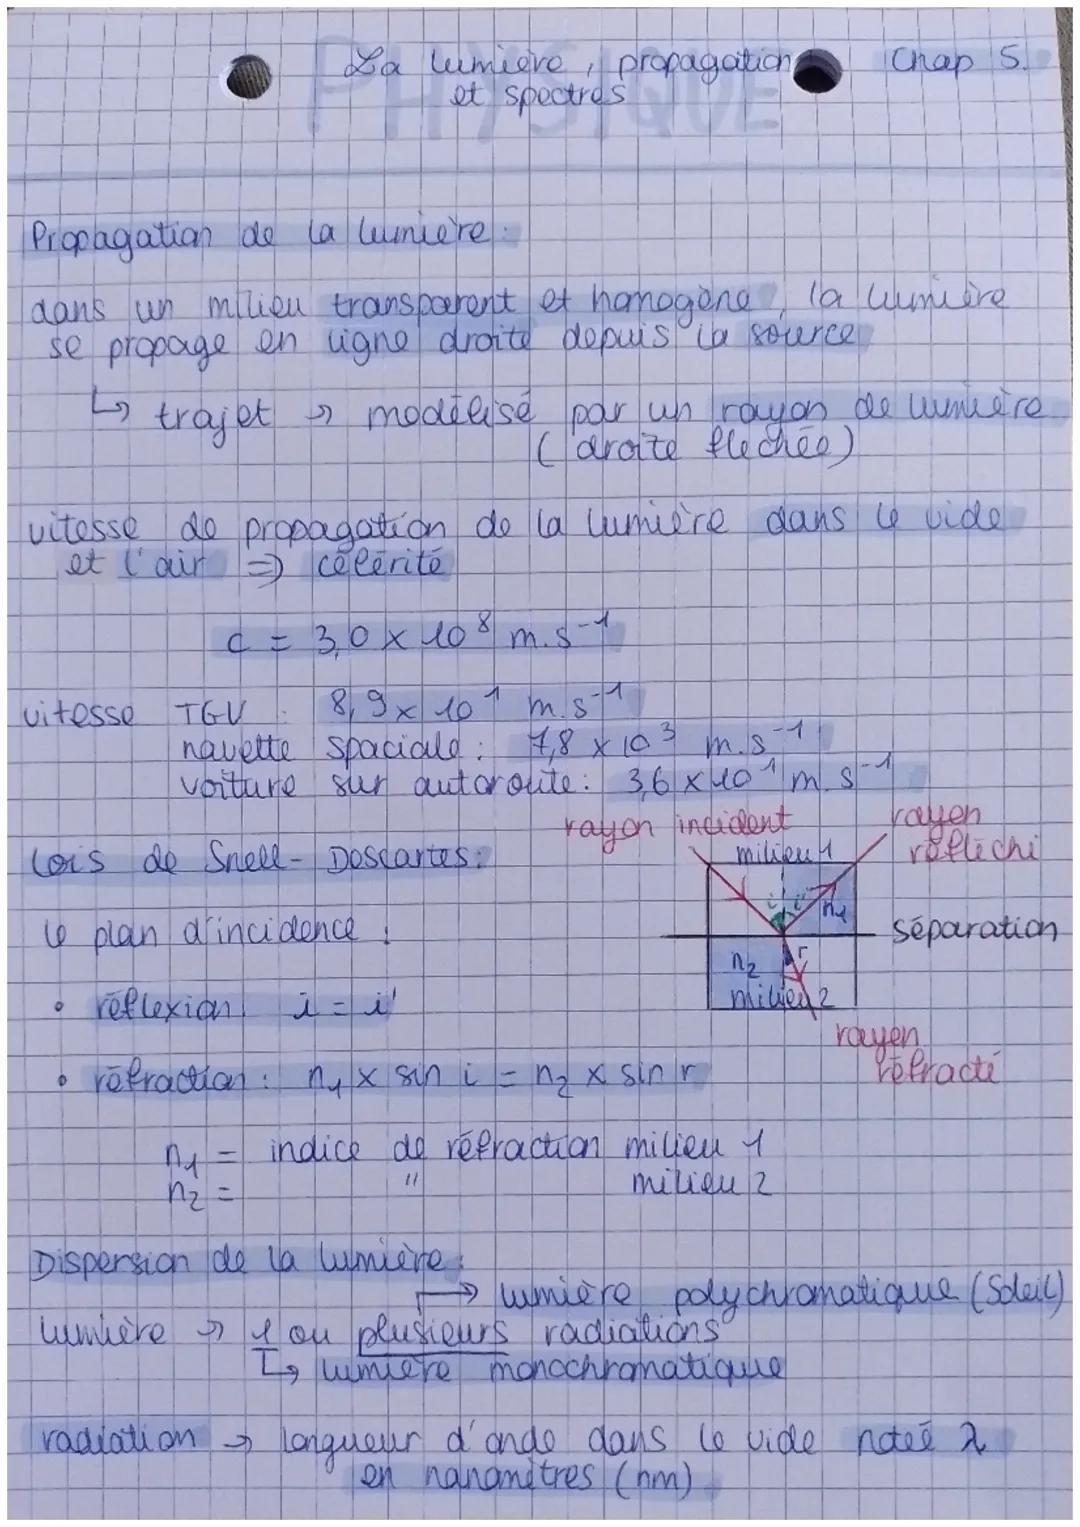 PHYSIQUE
La lumière, propagation Chap 5.
et spectres
Propagation de la lumière :
dans un milieu transparent et homogène, la lumière
se propage en ligne droite depuis la source
↳ trajet → modélisé par un rayon de lumière
(droite flechée)
vitesse de propagation de la lumière dans le vide
et l'air => célérité
c = 3,0 × 10⁸ m.s⁻¹
vitesse TGV : 8,9 × 10¹ m.s⁻¹
navette spaciale : 7,8 × 10³ m.s⁻¹
voiture sur autoroute : 3,6 × 10¹ m.s⁻¹
Lois de Snell-Descartes :
rayon incident
rayon réfléchi
milieu 1
i i' n₁
séparation
n₂ r
milieu 2
rayon réfracté
le plan d'incidence :
• réflexion i = i'
• réfraction : n₁ × sin i = n₂ × sin r
n₁ = indice de réfraction milieu 1
n₂ = " milieu 2
Dispersion de la lumière :
↱ lumière polychromatique (Soleil)
lumière → 1 ou plusieurs radiations
↳ lumière monochromatique
radiation → longueur d'onde dans le vide notée λ
en nanomètres (nm)